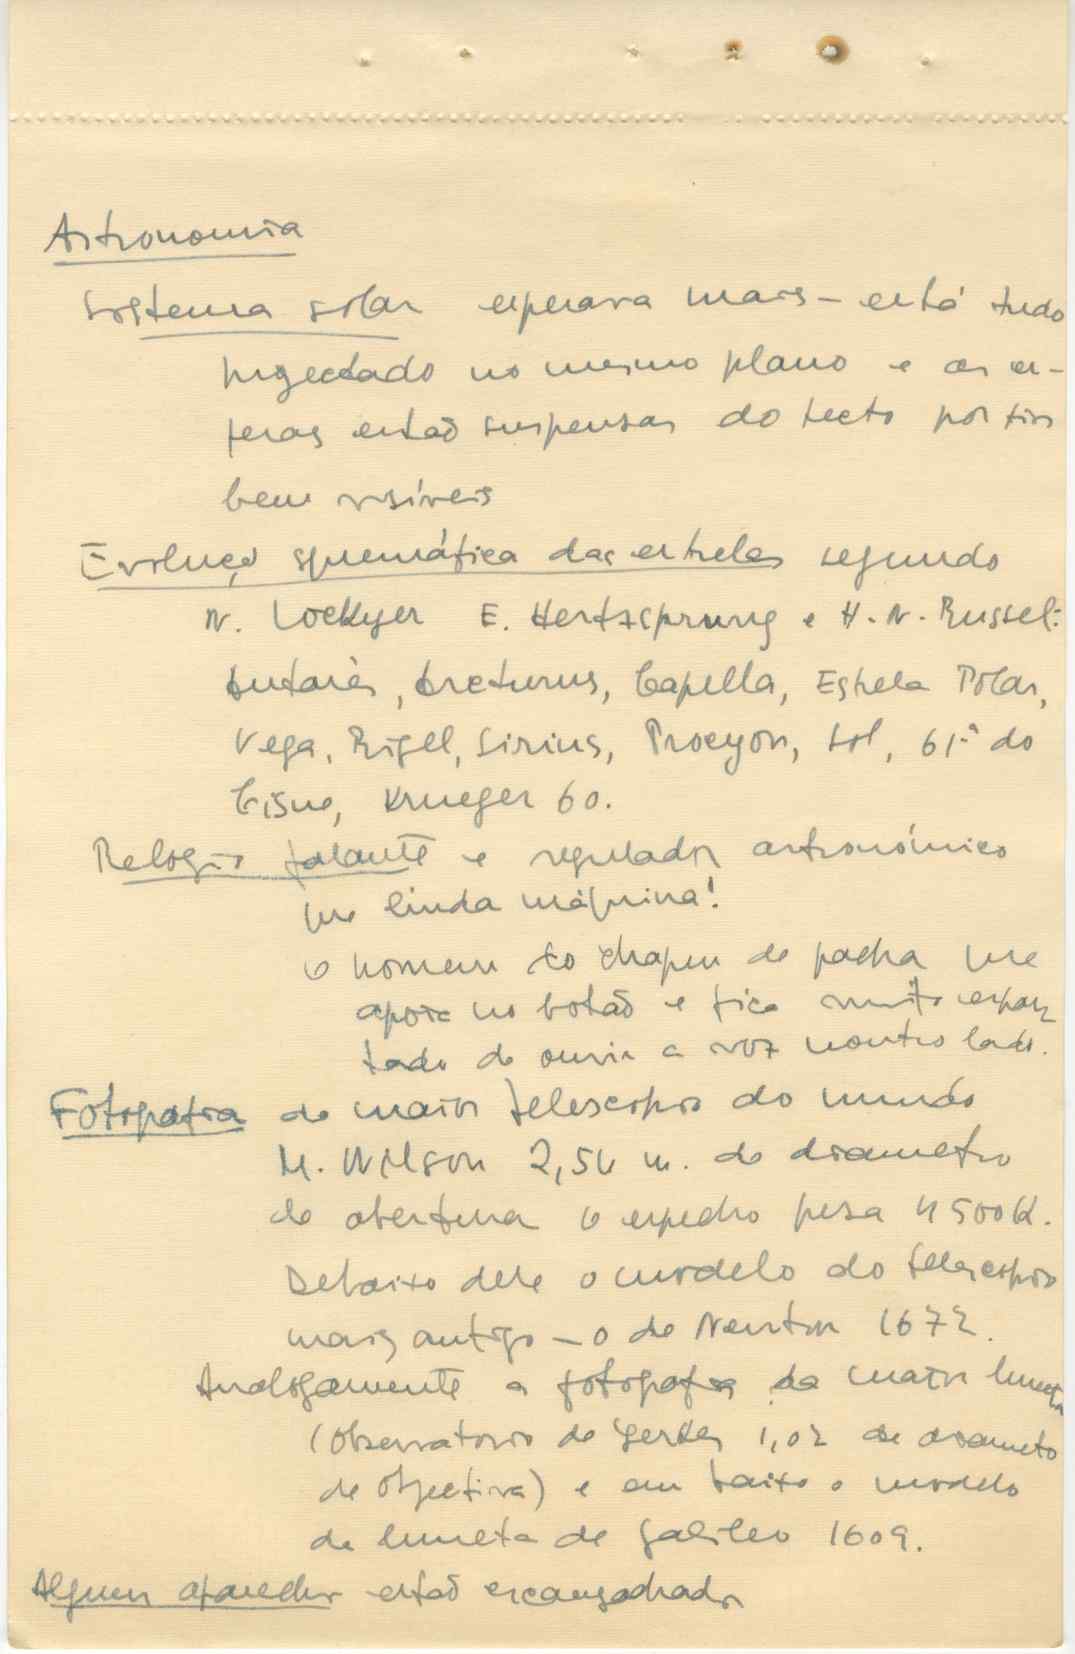 Astronomia
Sistema solar esperava mais – está tudo
projectado no mesmo plano e as es-
feras estão suspensas do tecto por fios
bem visíveis
Evolução squemática das estrelas segundo
N. Lockyer E. Hertzsprung e H. N. Russel:
Antarès, Arcturus, Capella, Estrela Polar,
Vega, Rigel, Sirius, Procyon, Sol, 61.ª do
Cisne, Krueger 60.
Relogio falante e regulador astronómico
que linda máquina!
O homem do chapeu de palha que
apoia no botão e fica muito espan
tado de ouvir a voz noutro lado.
Fotografia do maior telescopio do mundo
M. Wilson 2,54 m. de diametro
de abertura O espelho pesa 4500 K.
Debaixo dele o modelo do telescopio
mais antigo – o de Newton 1672.
Analogamente a fotografia da maior luneta
(Observatorio de Yerkes 1,02 de diametro
de objectiva) e em baixo o modelo
da luneta de Galileo 1609.
Alguns aparelhos estão escangalhados